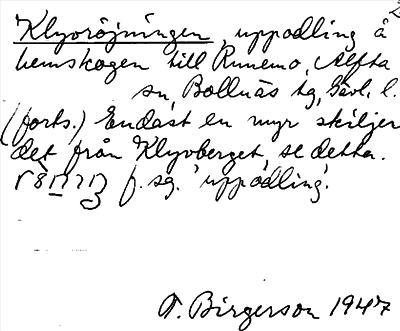 Klyoröjningen, uppodling å
hemskogen till Runemo, Alfta
sn, Bollnäs tg, Gävl. l.
(forts.) Endast en myr skiljer
det från Klyoberget, se detta.
f. sg. 'uppodling'.
T. Birgerson 1947